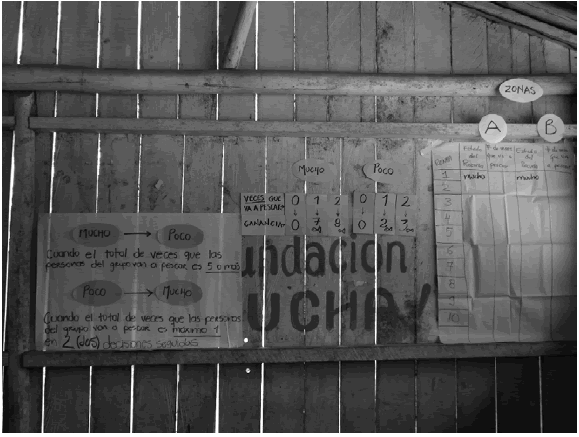 ZONAS
A B
MUCHO → POCO
Cuando el total de veces que las
personas del grupo van a pescar es 5 o más
POCO → MUCHO
Cuando el total de veces que las personas
del grupo van a pescar es máximo 1
en 2 (dos) decisiones seguidas
MUCHO POCO
VECES QUE VA A PESCAR 0 1 2 0 1 2
GANANCIA 0 7 8 0
undación
UCHA
Estado del Recurso
Estado del
1 mucho mucho
2
3
4
5
6
7
8
9
10